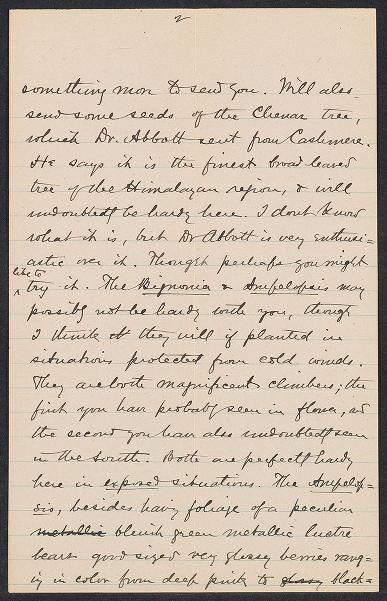 2
something more to send you. Will also
send some seeds of the Chenar tree,
which Dr. Abbott sent from Cashmere.
He says it is the finest broad leaved
tree of the Himalayan region, & will
undoubtedly be hardy here. I dont know
what it is, but Dr Abbott is very enthusi-
astic over it. Thought perhaps you might
like to
try it. The Bignonia & Ampelopsis may
possibly not be hardy with you, though
I think they will if planted in
situations protected from cold winds.
They are both magnificent climbers; the
first you have probably seen in flower, and
the second you have also undoubtedly seen
in the South. Both are perfectly hardy
here in exposed situations. The Ampelop-
sis, besides having foliage of a peculiar
metallic bluish green metallic lustre
bears good sized very glossy berries rang-
ing in color from deep pink to glossy black-